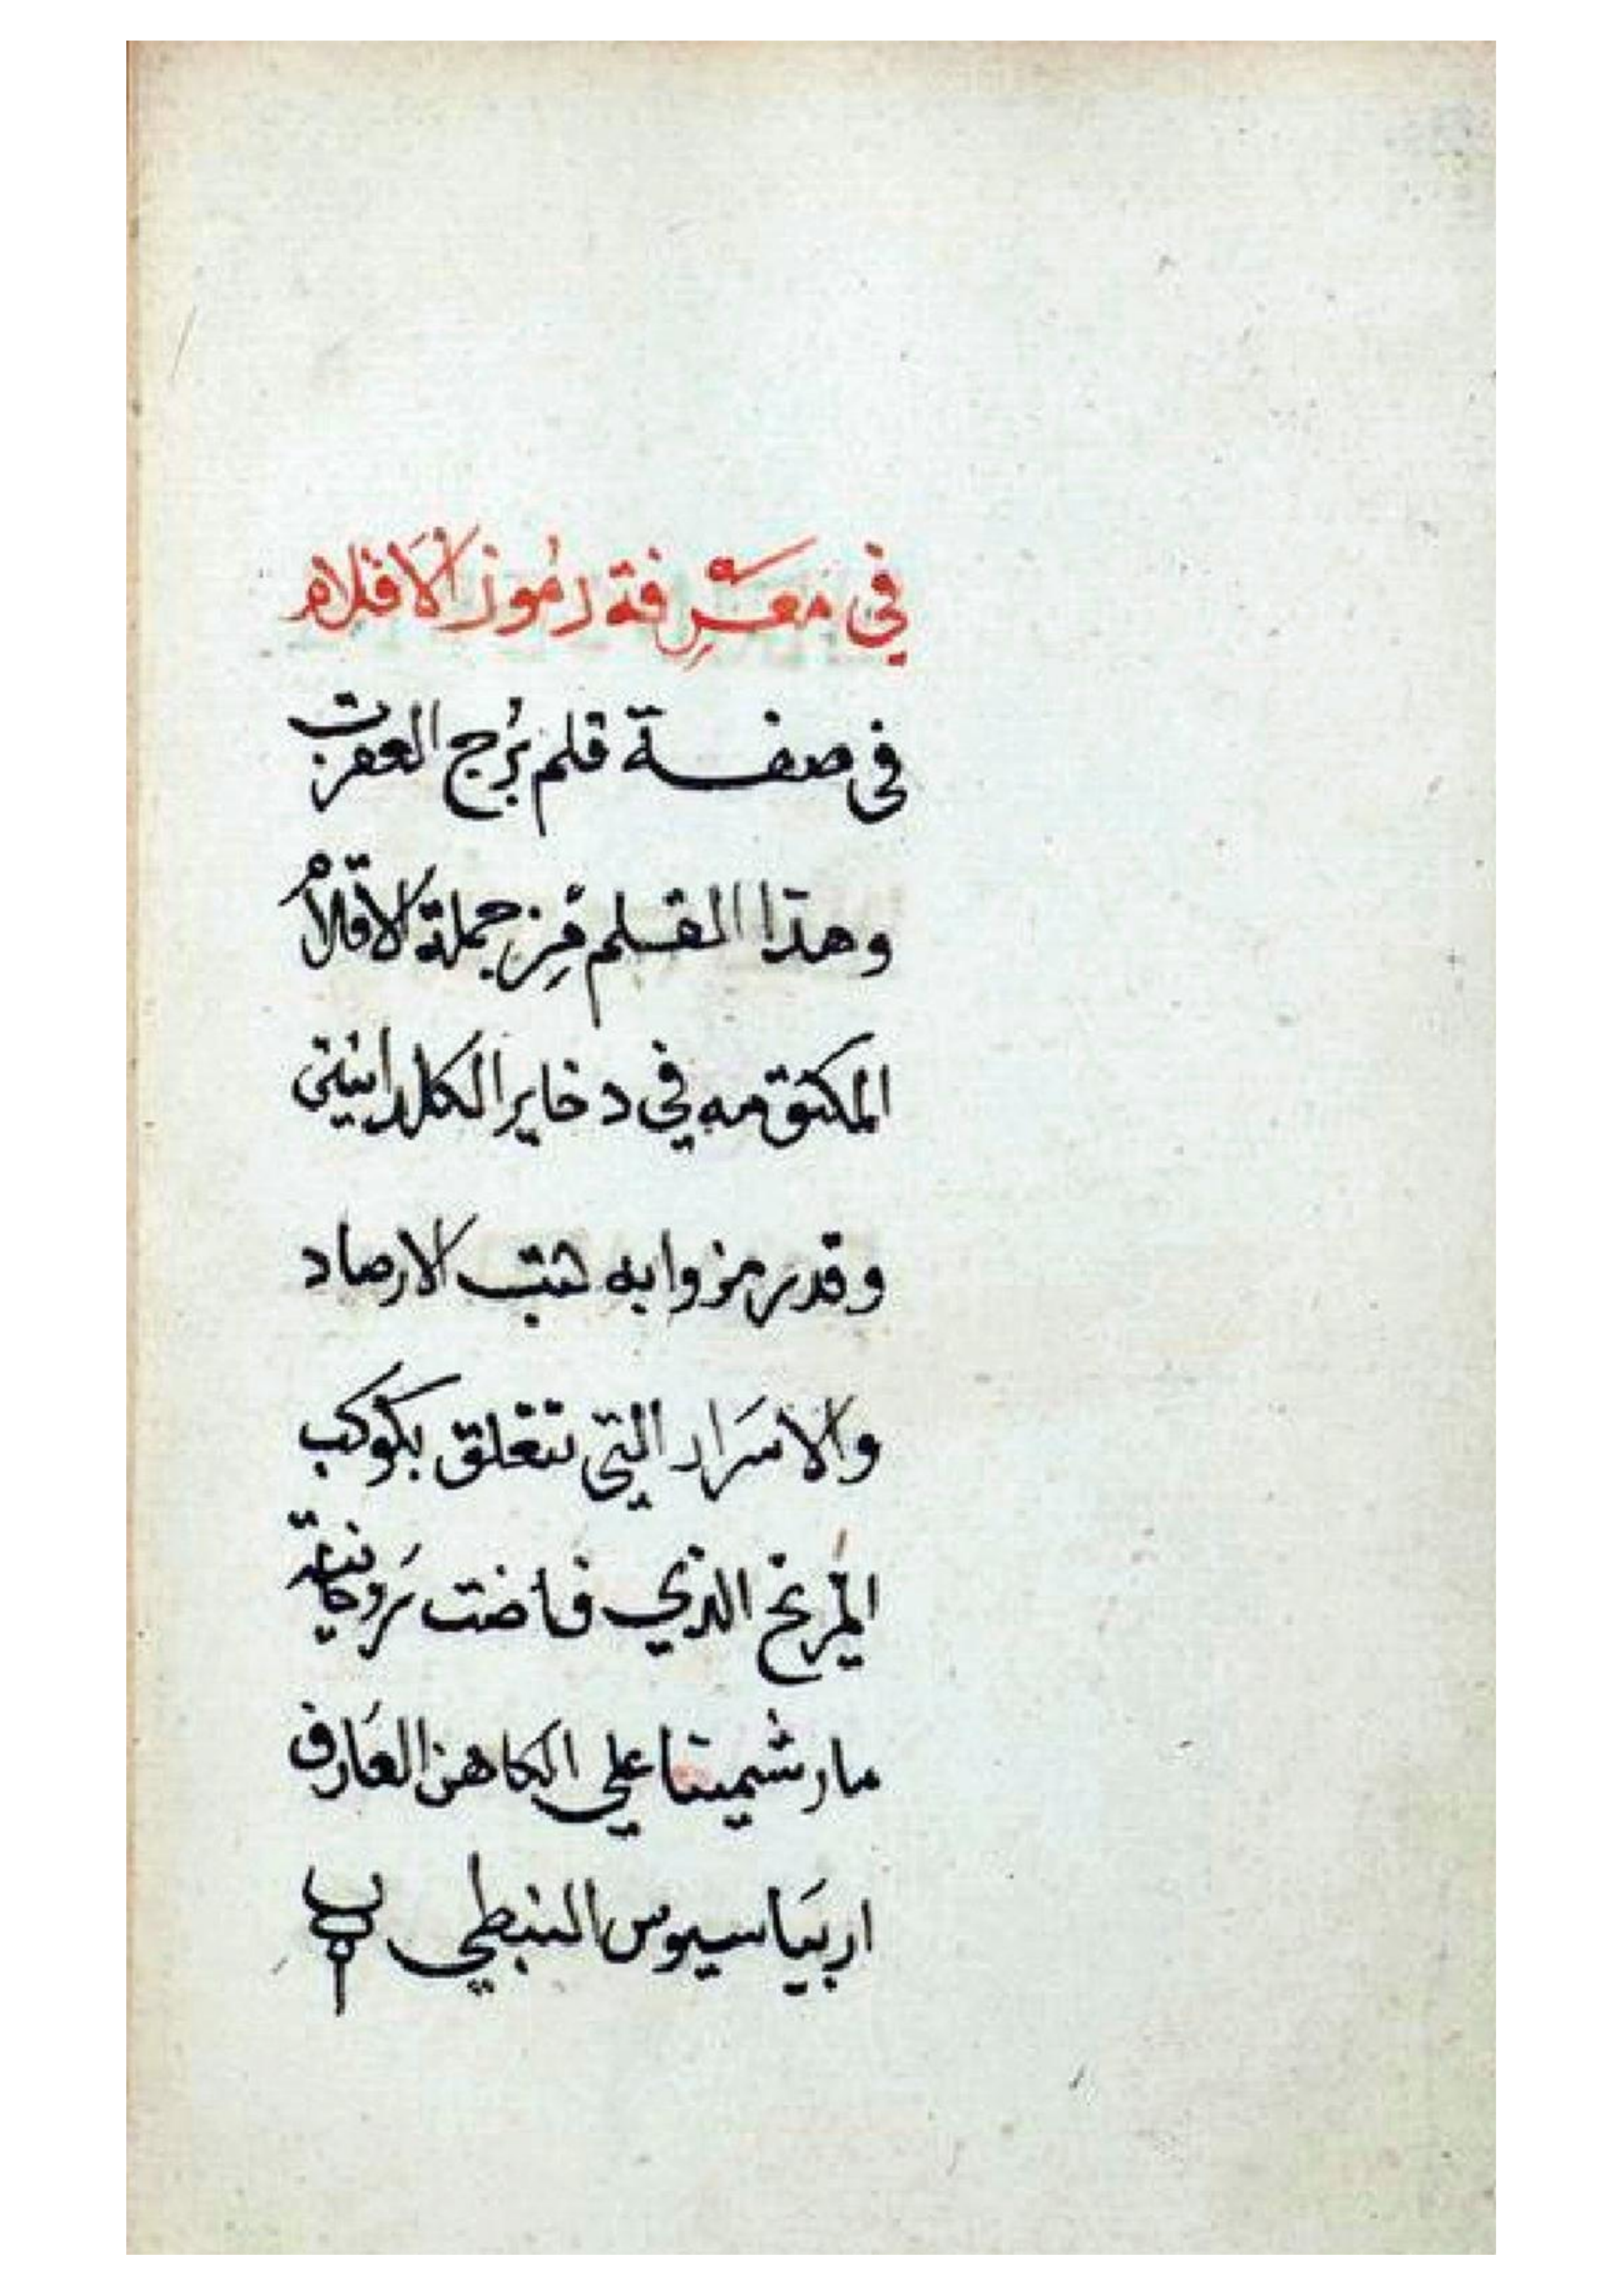 في معرفة رموز الاقلام
في صفة قلم برج العقرب
وهذا القلم من جملة الاقلام
المكتومه في دخاير الكلدانيين
وقد رمزوا به كتب الارصاد
والاسرار التي تتعلق بكوكب
المريخ الذي فاضت روحانية
مارشميتا علي الكاهن العارف
اربياسيوس النبطي